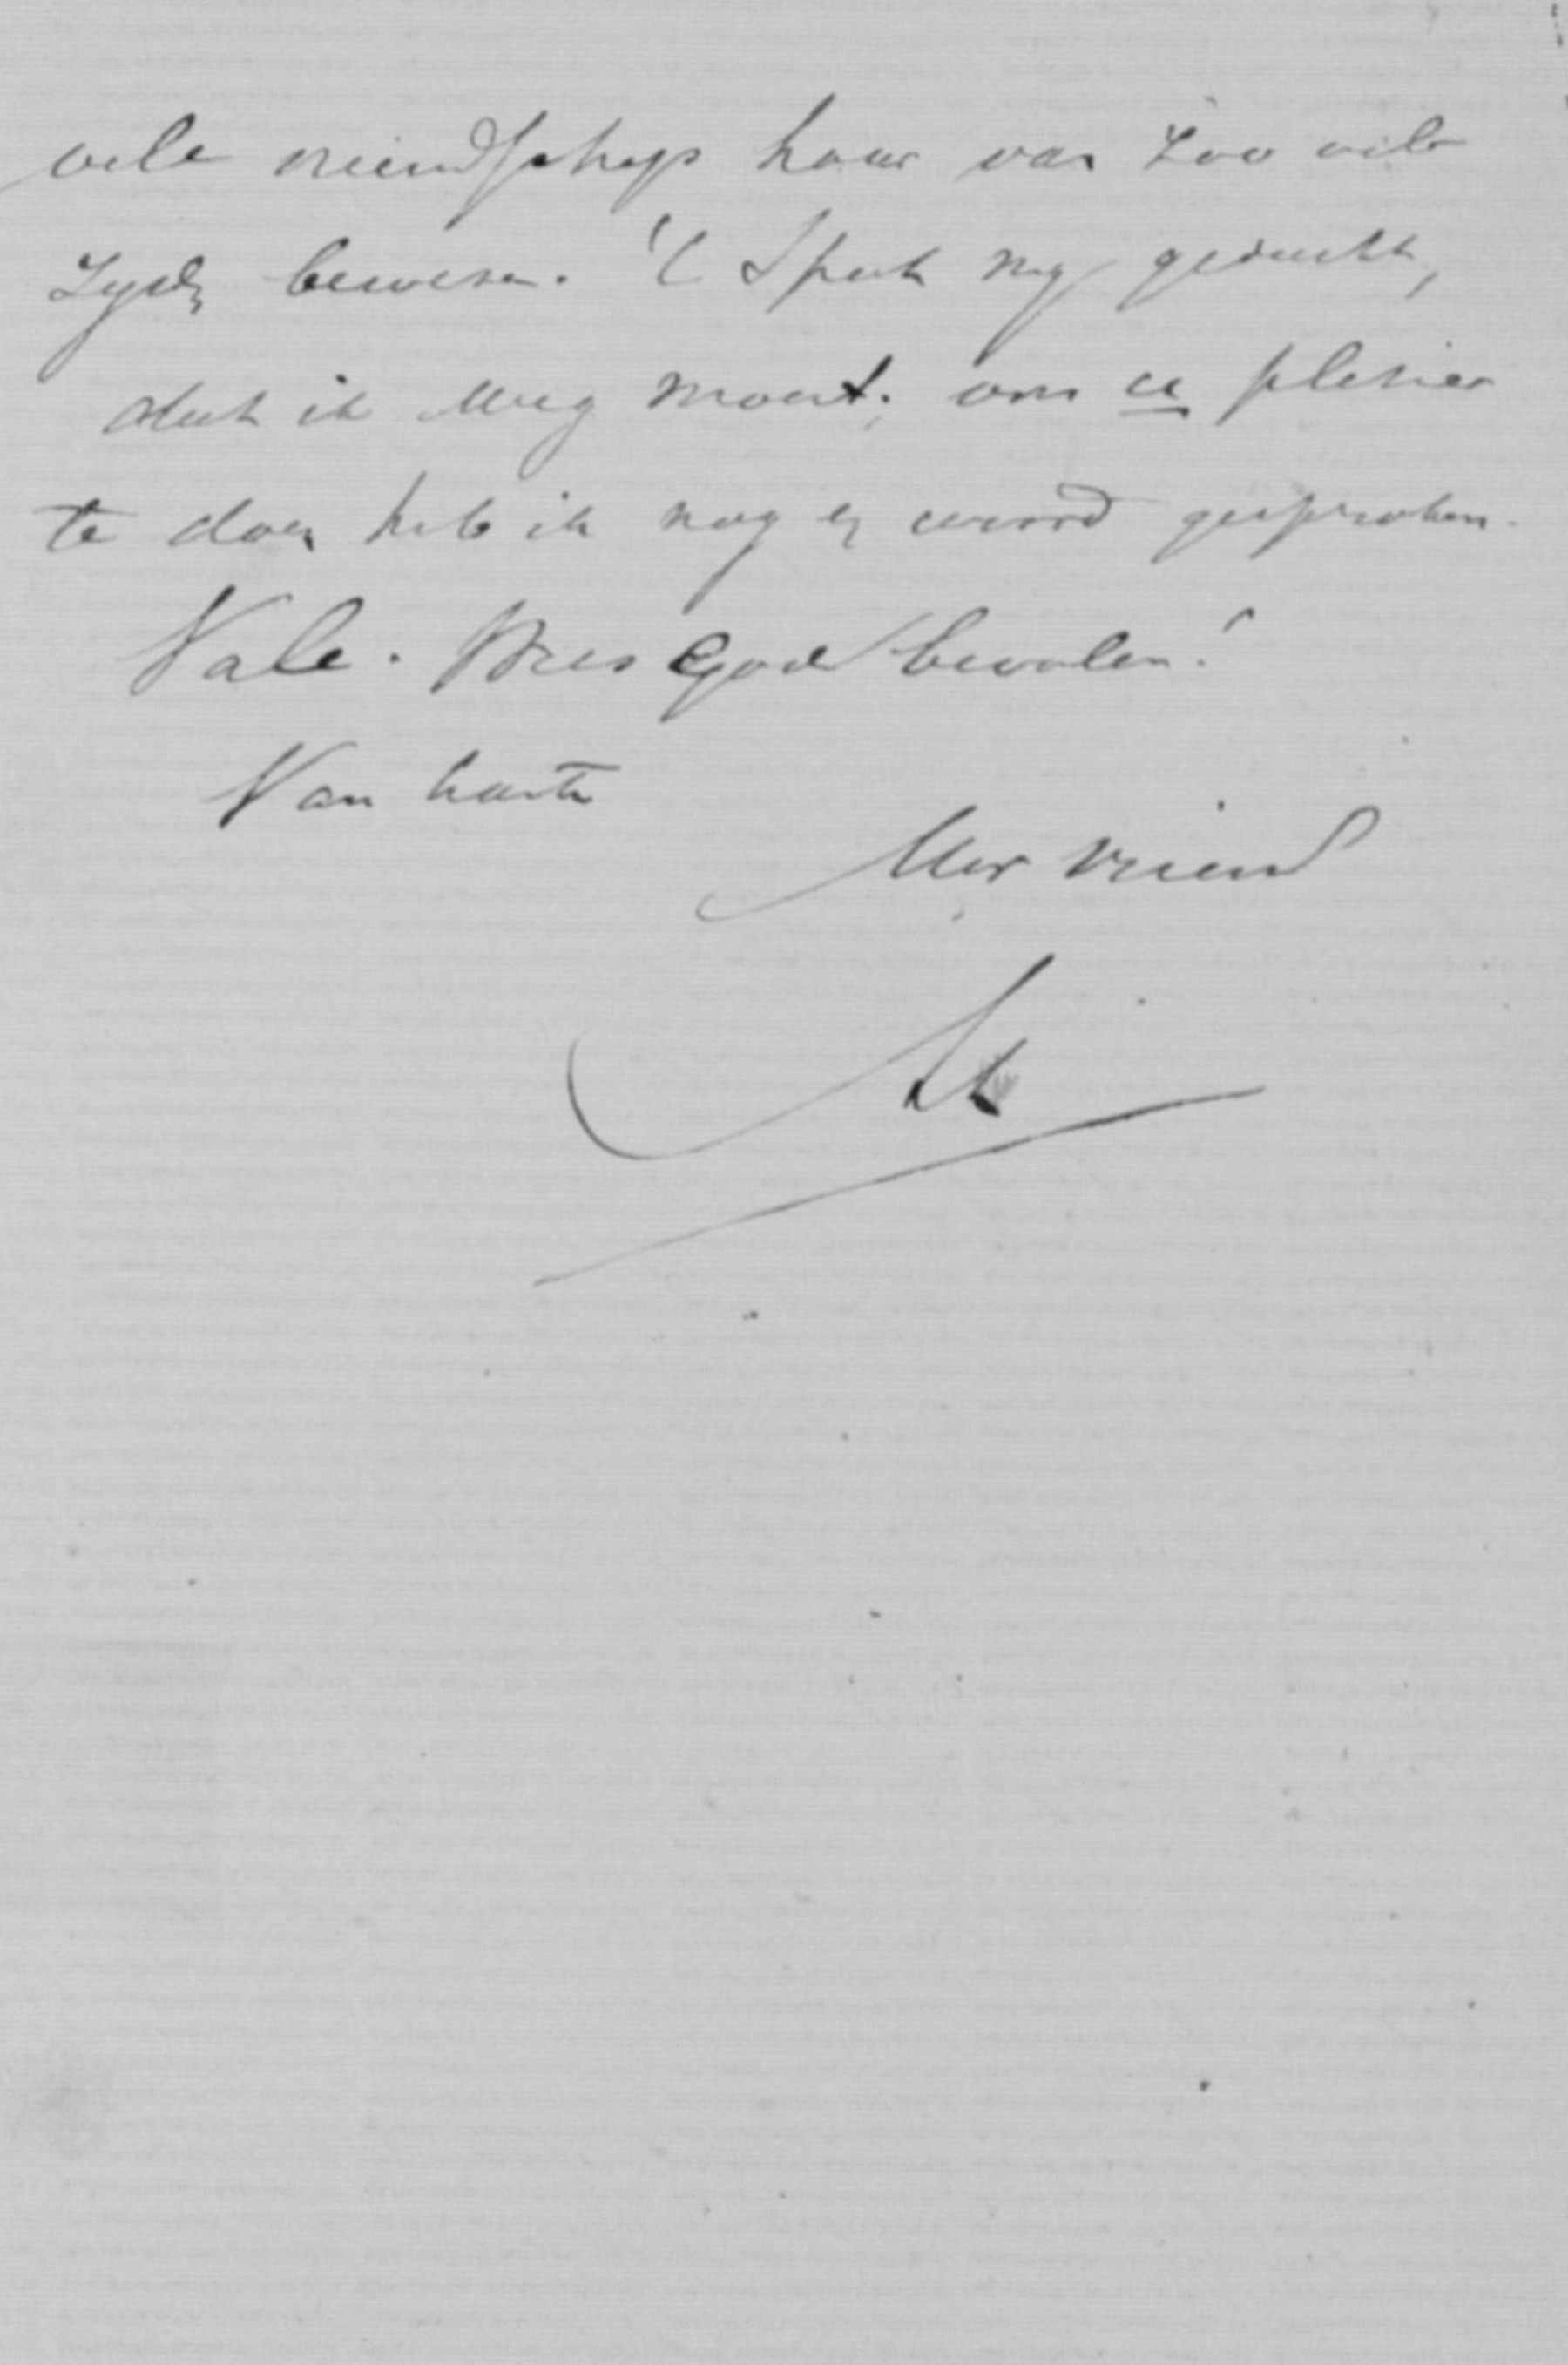 vele vriendschap haar van zoo vele
zyde bewesen. 't Spyt my geducht,
dat ik weg moet; om u plesier
te doen heb ik nog 'n woord gesproken.
Vale. Wees God bevolen!
Van harte
Uw vriend